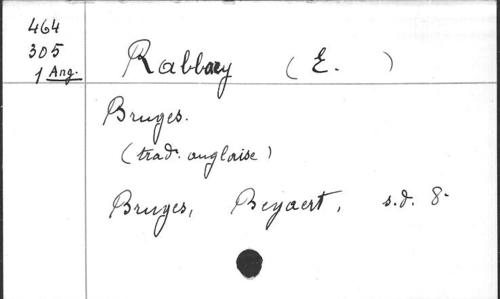 464
305
1 Ang.
Rabbaey (E. )
Bruges.
(trad. anglaise)
Bruges, Beyaert, s.d. 8-